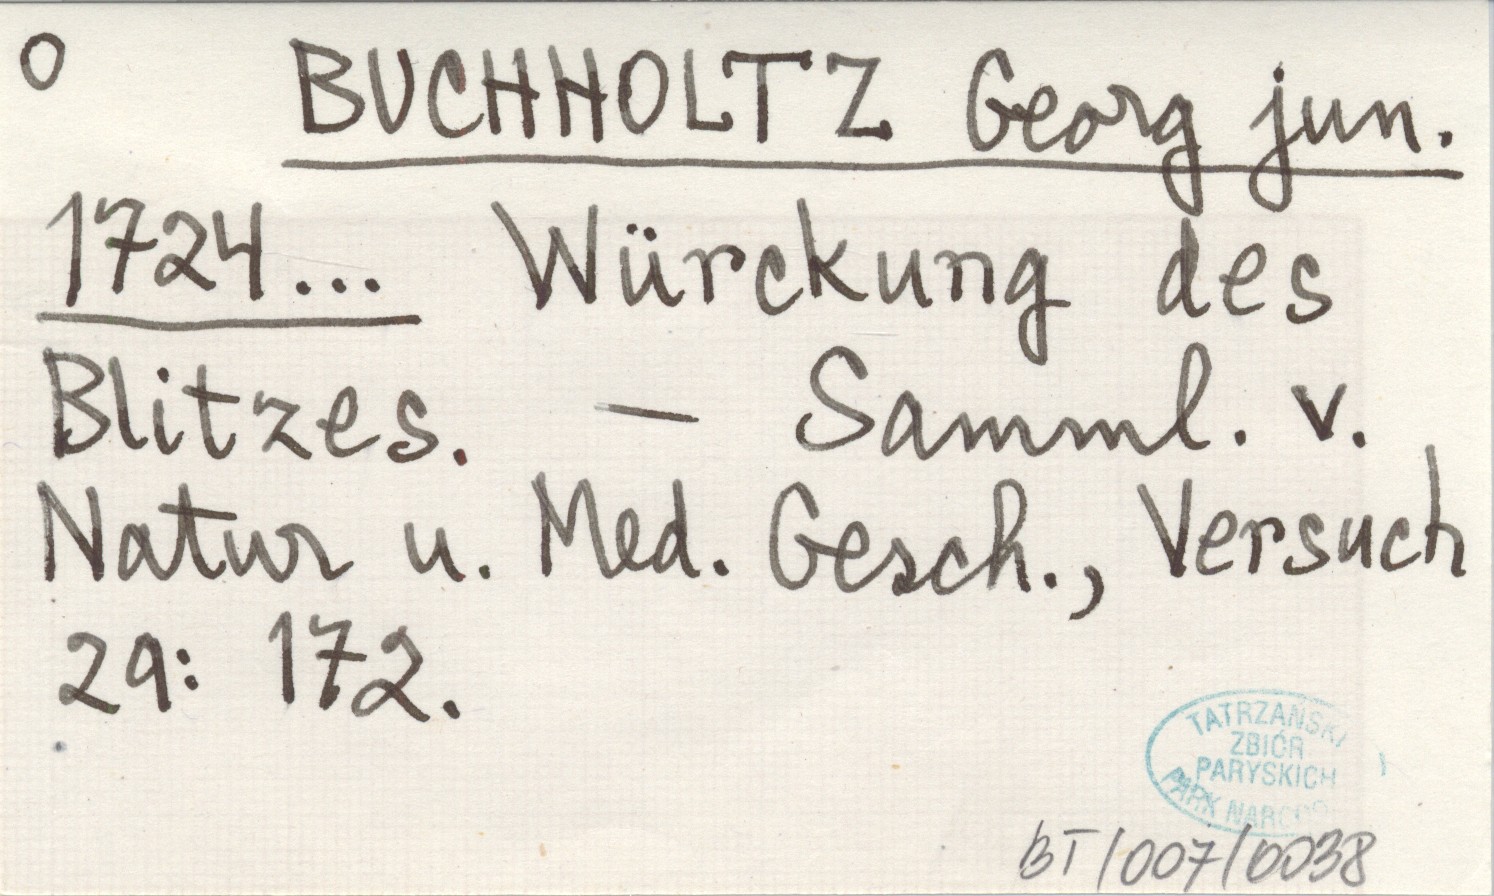 O BUCHHOLTZ Georg jun.
1724... Würckung des
Blitzes. — Samml. v.
Natur u. Med. Gesch., Versuch
29: 172.
TATRZAŃSKI
ZBIÓR
PARYSKICH
PARK NARODO
BT/007/0038